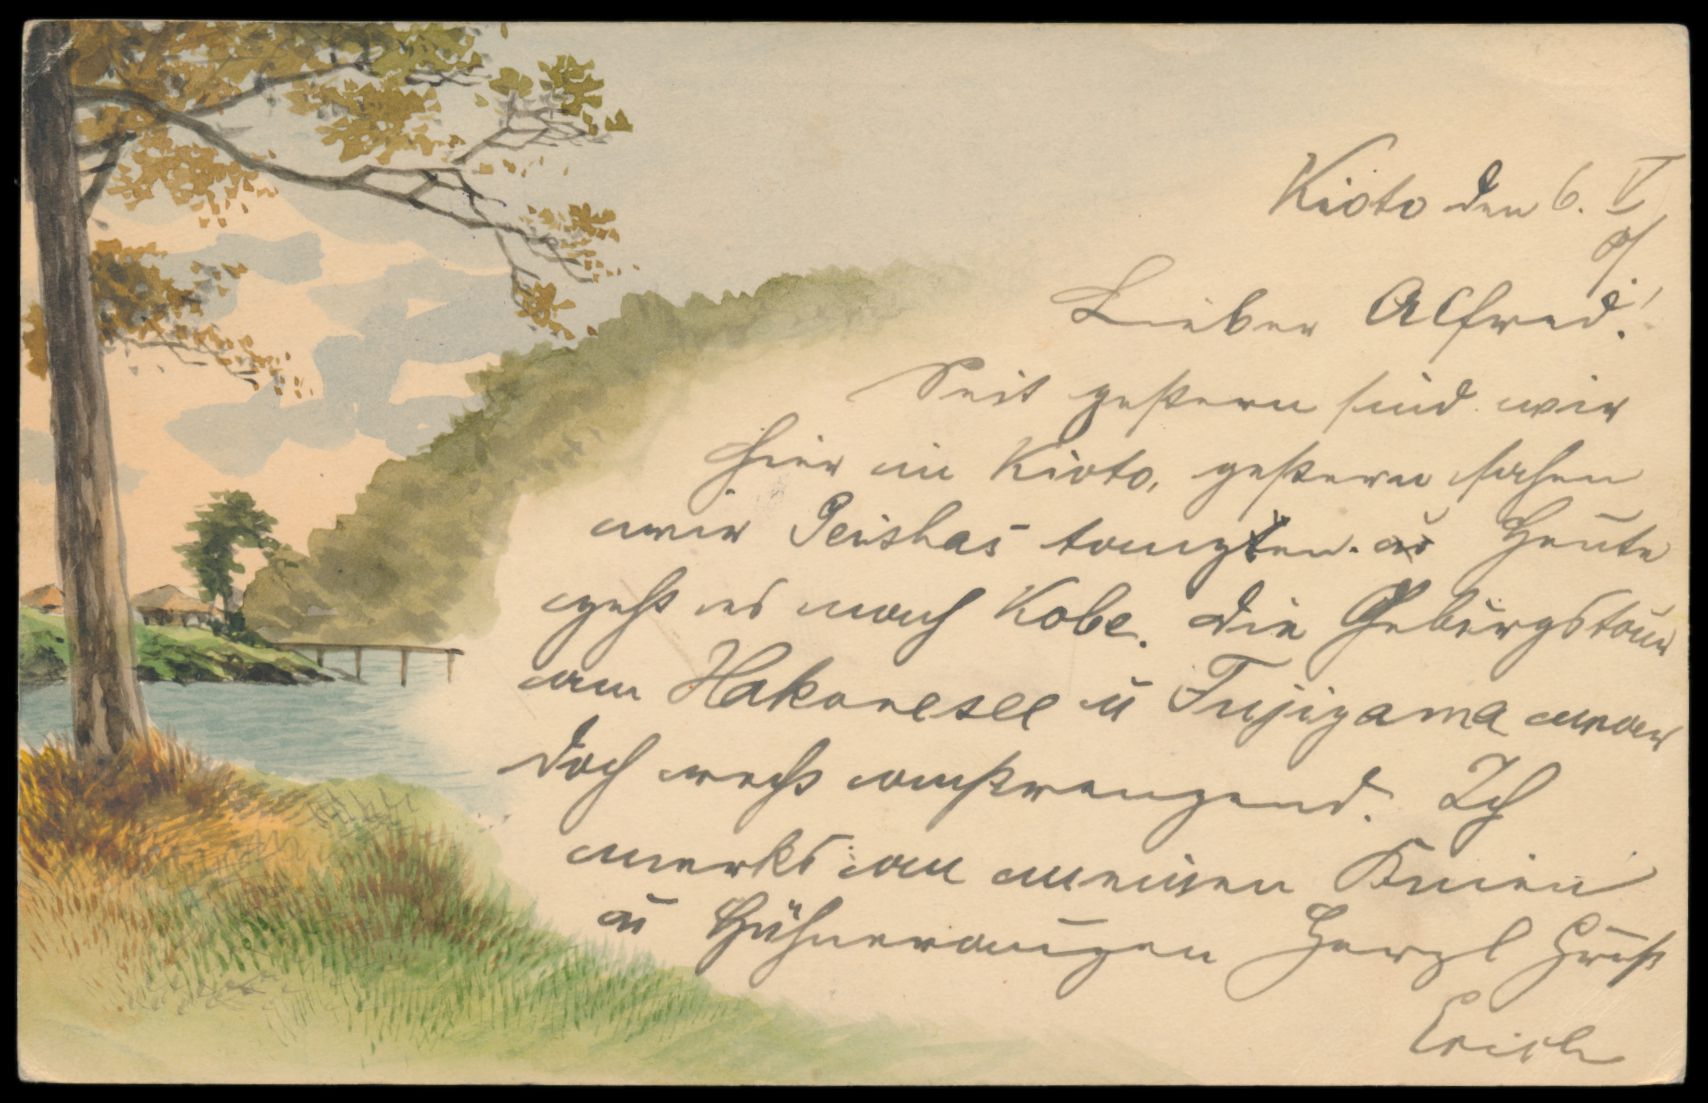 Kioto den 6. V
01
Lieber Alfred!
Seit gestern sind wir
hier in Kioto, gestern sahen
wir Geishas tanzten. Heute
geht es nach Kobe. Die Gebirgstour
am Hakonesee u Fujiyama war
doch recht anstrengend. Ich
merks an meinen Knien
u Hühneraugen Herzl Gruß
Erich